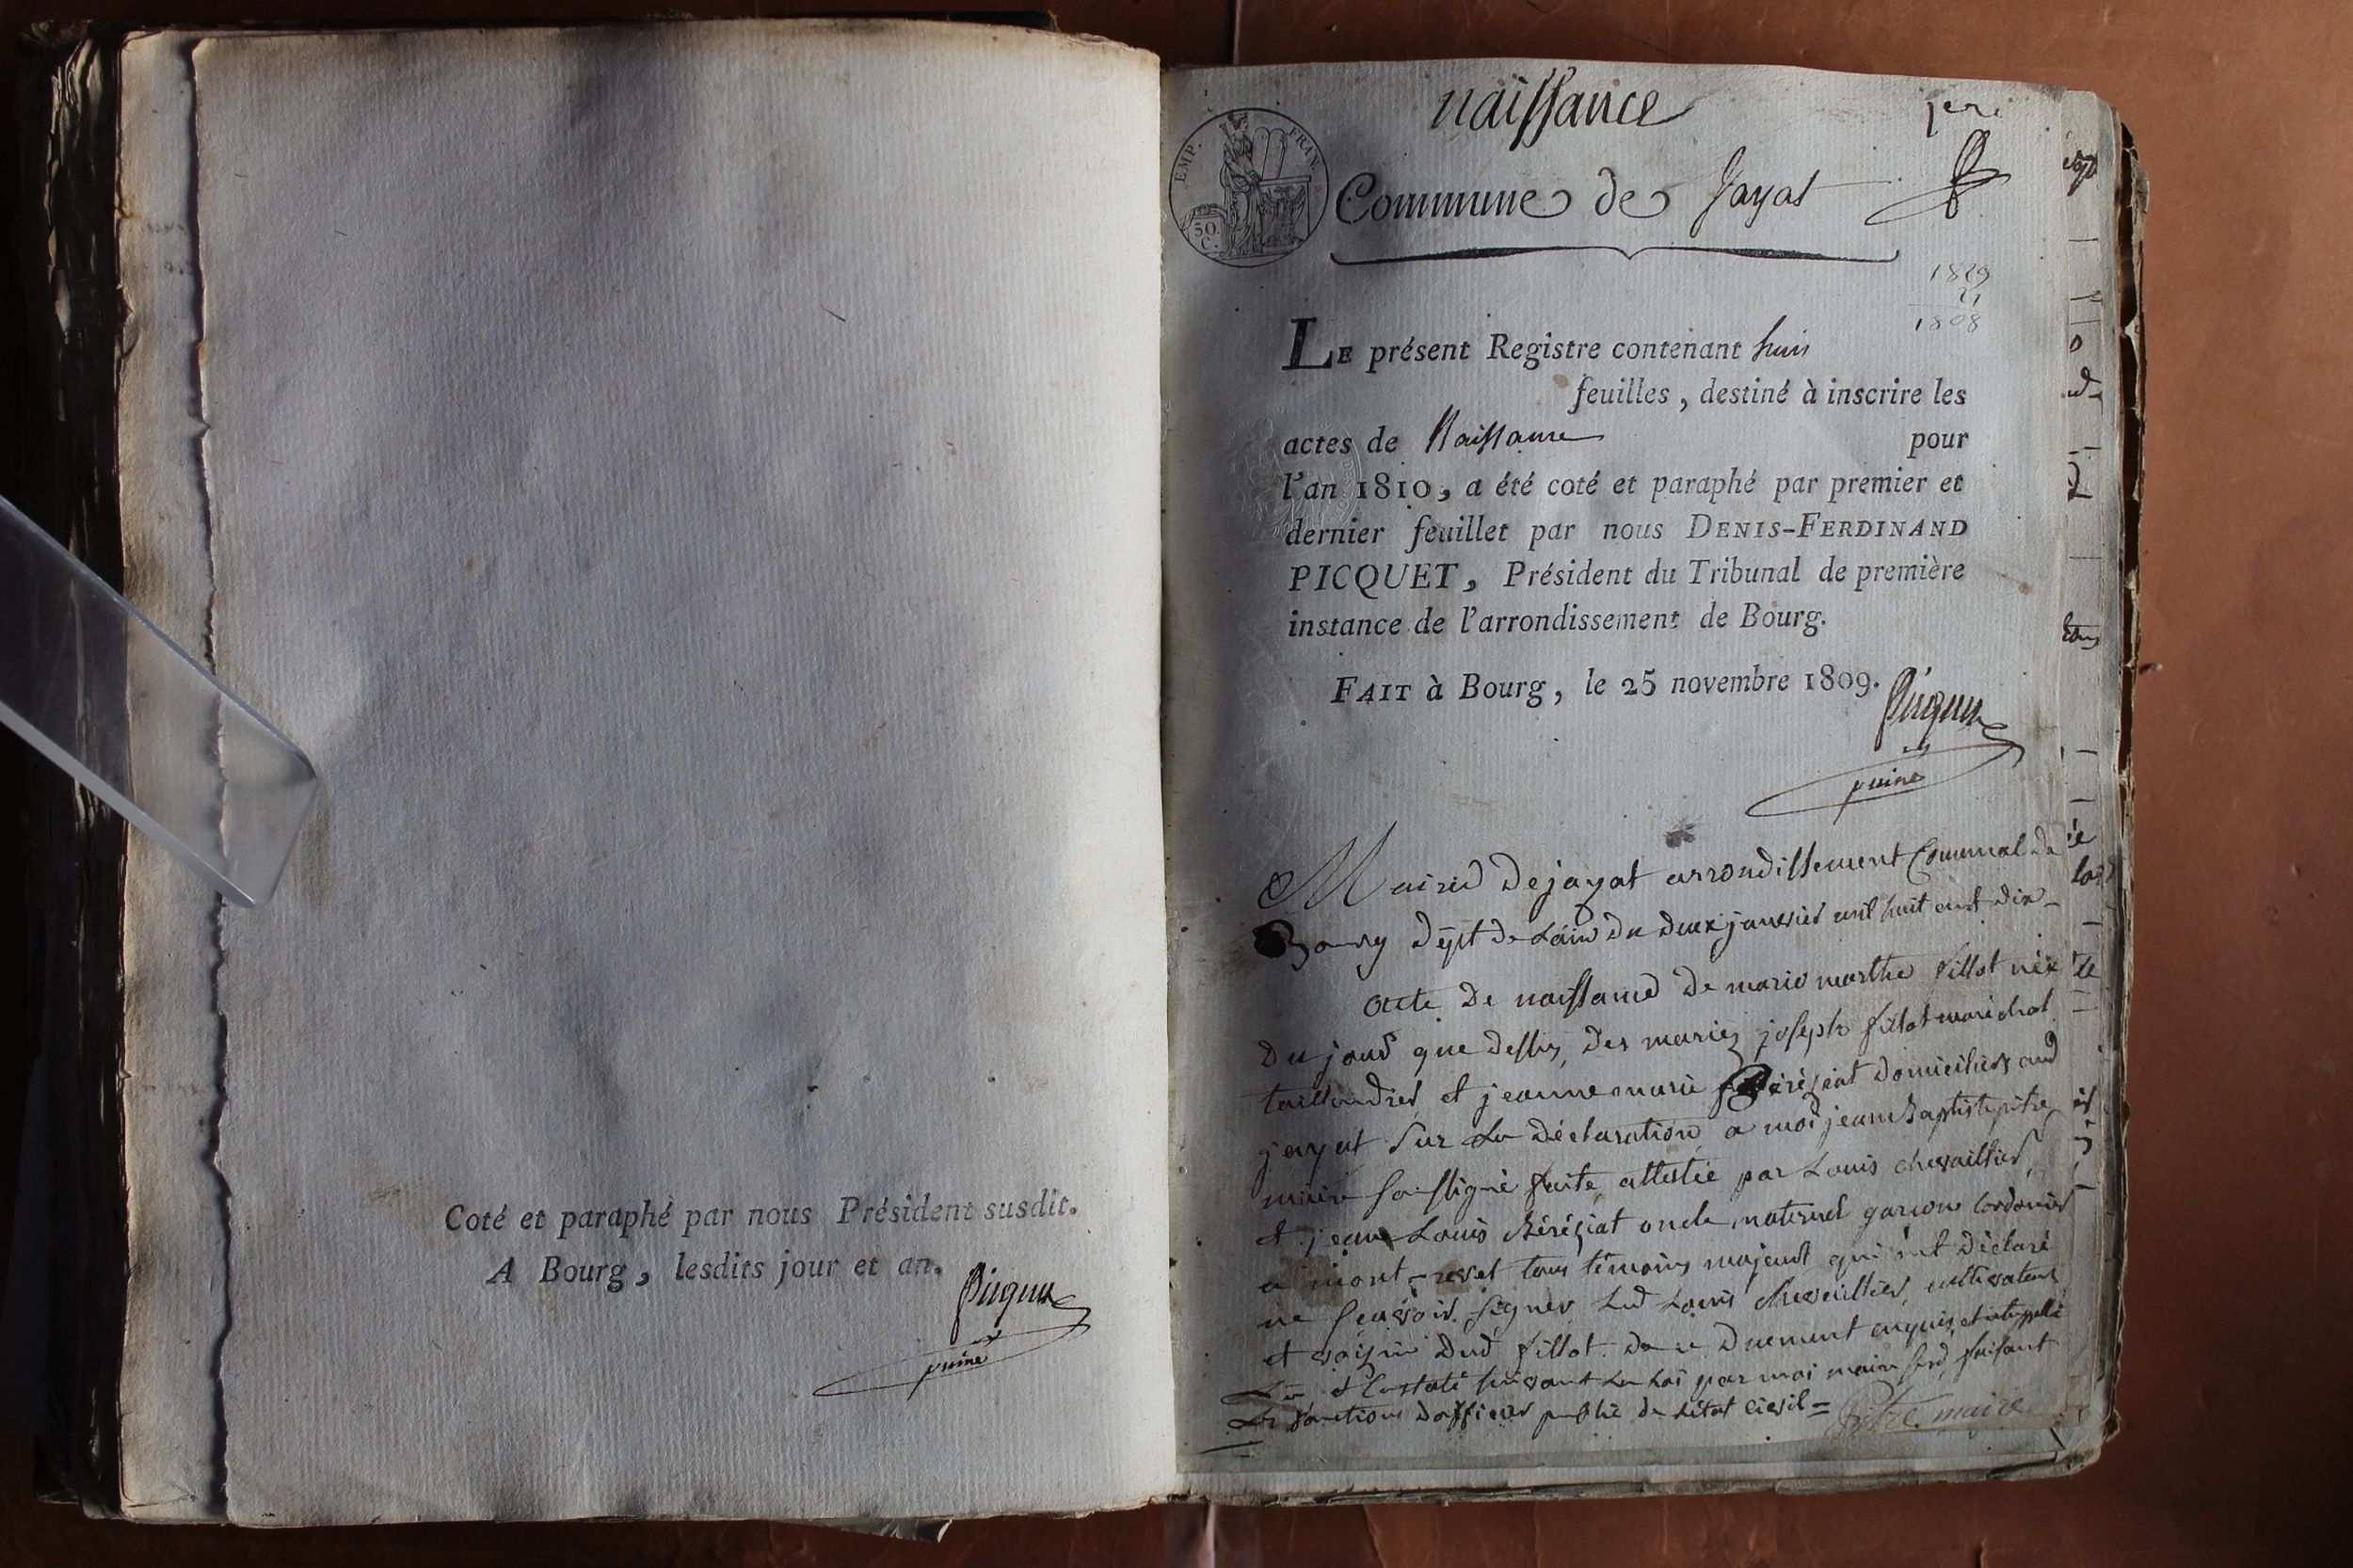 Coté et paraphé par nous Président susdit.
A Bourg, lesdits jour et an.
Picquet
puiné
naissance
EMP. FRAN
50.
C.
Commune de Jayat
1829
21
1808
LE présent Registre contenant huit
feuilles, destiné à inscrire les
actes de Naissance pour
l'an 1810, a été coté et paraphé par premier et
dernier feuillet par nous DENIS-FERDINAND
PICQUET, Président du Tribunal de première
instance de l'arrondissement de Bourg.
FAIT à Bourg, le 25 novembre 1809.
Picquet
puiné
Mairie de jayat arrondissement Communal de
Bourg dépt de Lain du deux janvier mil huit cent dix
acte De naissance de marie marthe fillot née
du jour que dessus, des mariez joseph fillot maréchal
taillandier et jeanne marie Béréziat domiciliers aud
jayat sur la déclaration a moi jean Baptiste pitre
maire soussigné faite, attestée par Louis chevaillier
et jean Louis Béréziat oncle maternel garçon Cordonier
a mont-revel tous témoins majeurs qui ont déclaré
ne scavoir signer, led Louis chevaillier, cultivateur
et voisin dud fillot. de ce Duement enquis et interpellé
Lu & Constaté suivant La Loi par moi maire susd faisant
Les fonctions dofficier public de létat civil =
Pitre maire